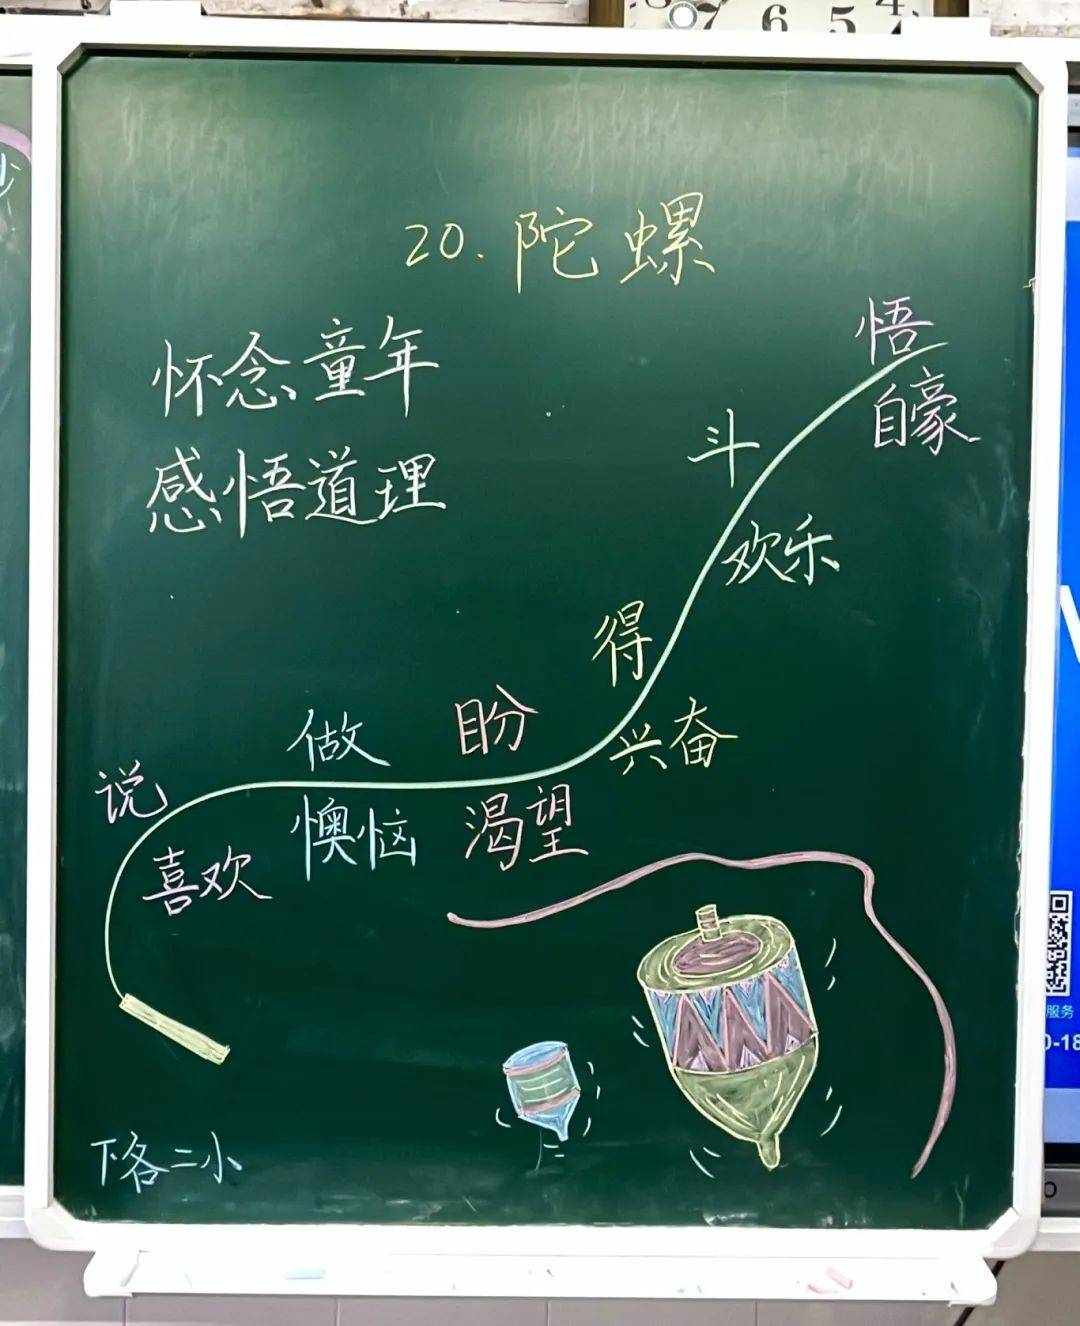 8 7 6 5 4
20. 陀螺
怀念童年
感悟道理
悟
自豪
斗
欢乐
得
兴奋
盼
渴望
做
懊恼
说
喜欢
下各二小
服务
0-18